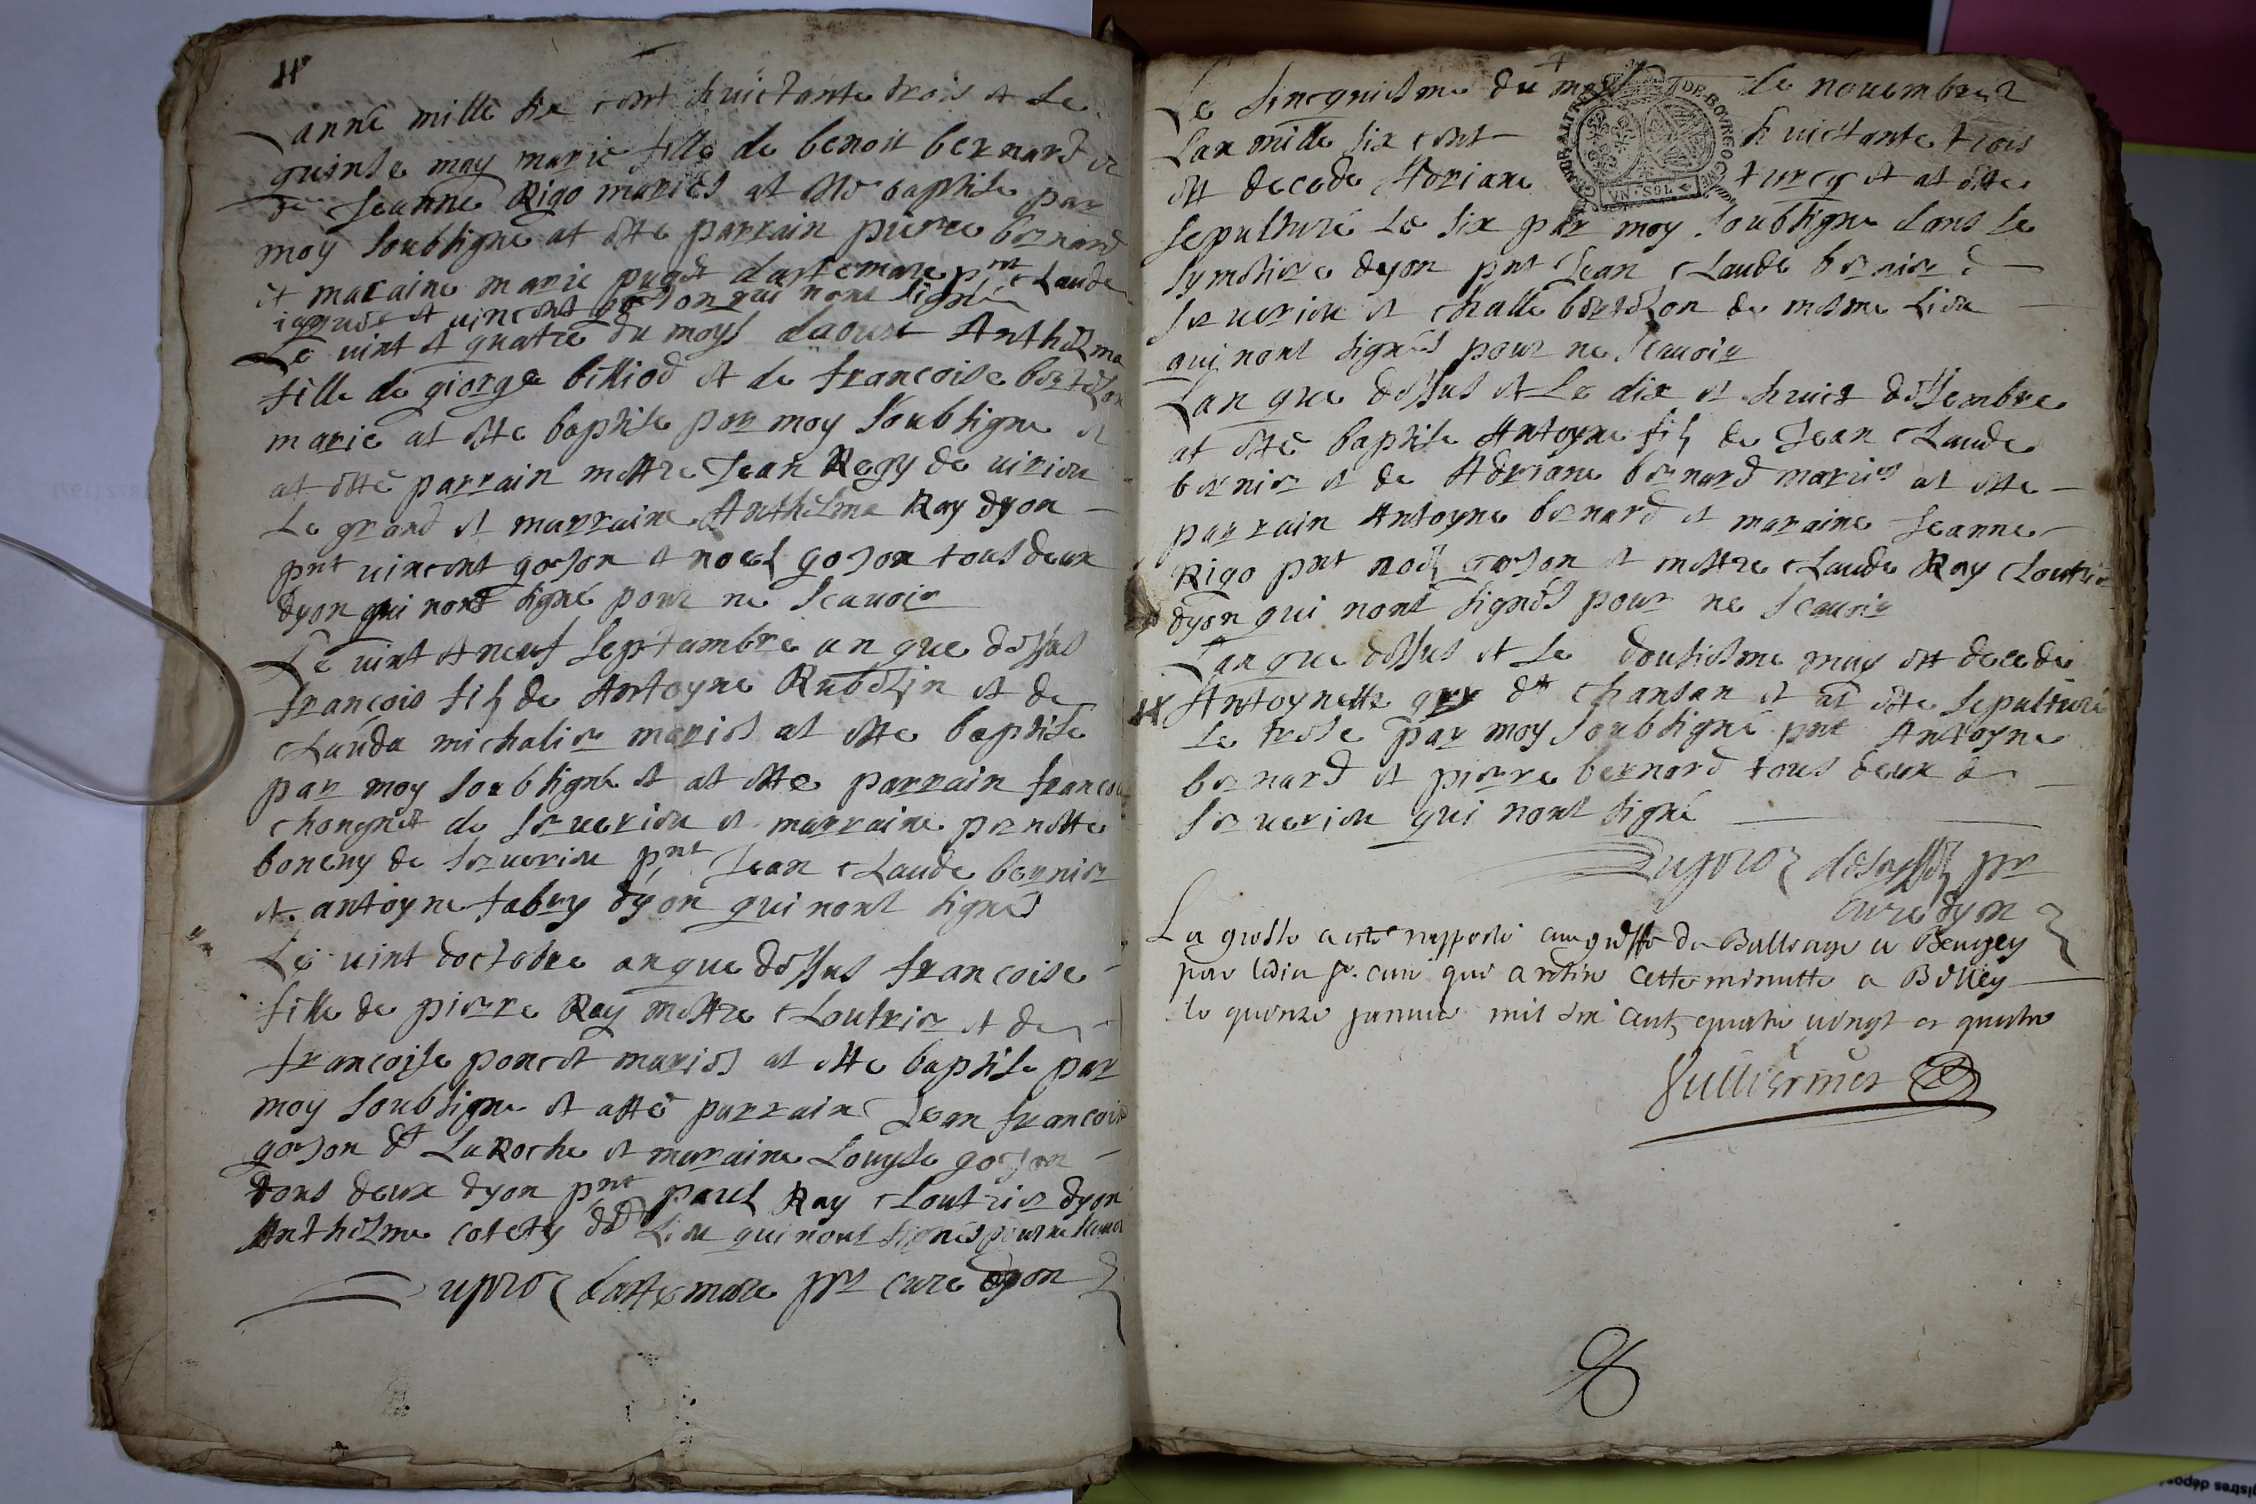 Lanné mille six cent huictante trois et le
quinse may marie fille de benoit bernard et
de Jeanne Rigo mariés at esté baptise par
moy soubsigné at esté parrain pierre bernard
et maraine marie puget dartemare pnt Claude
et vincent gojon qui nont signé
Le vint et quatre du moys daoust Anthelma
fille de giorge billiod et de francoise bertelon
marie at esté baptise par moy soubsigne et
at esté parrain mettre Jean Regy de virieu
Le grand et marraine Anthelma Ray dyon
pnt vincent gojon et noel gojon tous deux
dyon qui nont signé pour ne scavoir
Le vint et neuf septambre an que dessus
francois fils de Antoyne Rubelin et de
Clauda michalier mariés at esté baptise
par moy soubsigné et at esté parrain francois
chongnet de severieu et marraine pernette
boneny de serverieu pnt Jean Claude bernier
et antoyne fabvy dyon qui nont signés
Le vint doctobre an que dessus francoise
fille de pierre Ray mettre Cloutrier et de
francoise poncet mariés at esté baptise par
moy soubsigne et atté parrain Jean francois
gojon dt La Roche et maraine Louyse gojon
tous deux dyon pnt paul Ray Cloutrier dyon
Anthelme cotety dudt Lieu qui nont signés pour ne scavoir
dartemare ptr cure dyon
Le sinquiesme du mois de novembre
Lan mille six cent huictante trois
GNRALITE DE BOVRGOGNE
VN SOL
est decede Adriane turcq et at esté
sepulturé Le six par moy soubsigne dans le
symetiere dyon pnt Jean Claude bernier de
serverieu et challe bertelon de mesme Lieu
qui nont signés pour ne scavoir
Lan que dessus et Le dix et huict dessembre
at esté baptise Antoyne fils de Jean Claude
bernier et de Adriane bernard mariés at esté
parrain Antoyne bernard et maraine Jeanne
Rigo pnt noel gojon et mettre Claude Ray Cloutrier
dyon qui nont signés pour ne scavoir
Lan que dessus et Le dousiesme may est decede
Antoynette guy dt chansan et at esté sepulturé
Le trese par moy soubsigné pnt Antoyne
bernard et pierre bernard tous deux de
serverieu qui nont signé
ptr
cure dyon
La grosse a esté rapporté au greffe du Balliage a Beugey
par ledit sr. curé qui a retiré cette minutte a Belley
le quinze janvier mil six cent quatre vingt et quatre